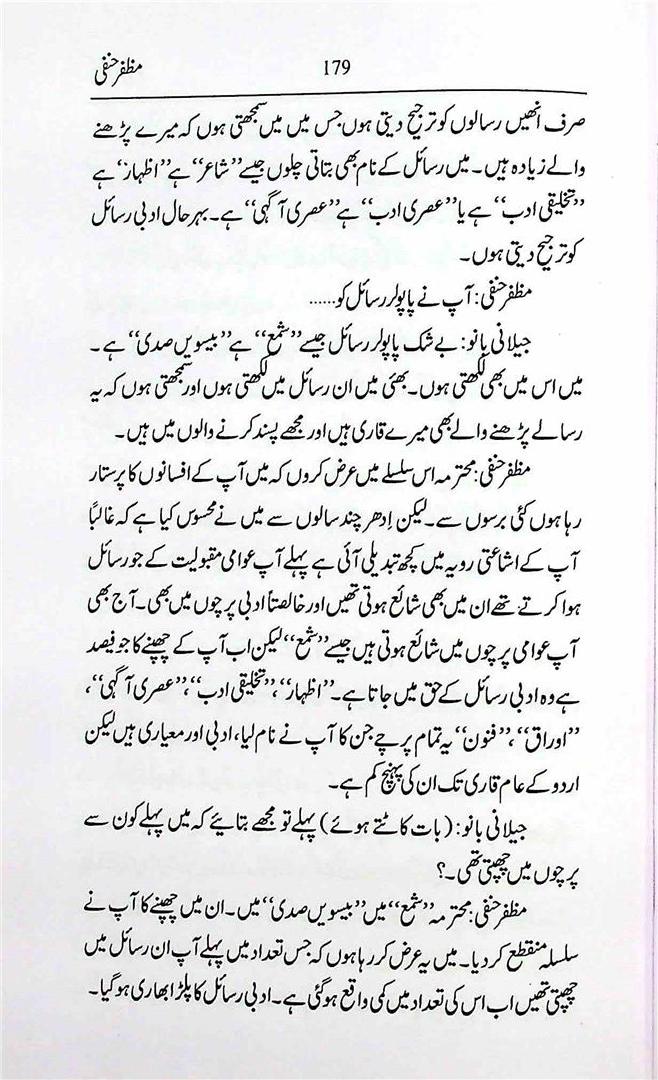 مظفر حنفی
179
صرف انھیں رسالوں کو ترجیح دیتی ہوں جس میں میں سمجھتی ہوں کہ میرے پڑھنے
والے زیادہ ہیں۔ میں رسائل کے نام بھی بتاتی چلوں جیسے ”شاعر“ ہے ”اظہار‘ ہے
”تخلیقی ادب“ ہے یا ”عصری ادب“ ہے ”عصری آگہی“ ہے۔ بہر حال ادبی رسائل
کو ترجیح دیتی ہوں۔
مظفر حنفی: آپ نے پاپولر رسائل کو......
جیلانی بانو: بے شک پاپولر رسائل جیسے ”شمع“ ہے ”بیسویں صدی“ ہے۔
میں اس میں بھی لکھتی ہوں۔ بھئی میں ان رسائل میں لکھتی ہوں اور سمجھتی ہوں کہ یہ
رسالے پڑھنے والے بھی میرے قاری ہیں اور مجھے پسند کرنے والوں میں ہیں۔
مظفر حنفی: محترمہ اس سلسلے میں عرض کروں کہ میں آپ کے افسانوں کا پرستار
رہا ہوں کئی برسوں سے۔ لیکن اِدھر چند سالوں سے میں نے محسوس کیا ہے کہ غالباً
آپ کے اشاعتی رویہ میں کچھ تبدیلی آئی ہے پہلے آپ عوامی مقبولیت کے جو رسائل
ہوا کرتے تھے ان میں بھی شائع ہوتی تھیں اور خالصتاً ادبی پرچوں میں بھی۔ آج بھی
آپ عوامی پرچوں میں شائع ہوتی ہیں جیسے ”شمع“ لیکن اب آپ کے چھپنے کا جو فیصد
ہے وہ ادبی رسائل کے حق میں جاتا ہے۔ ”اظہار“، ”تخلیقی ادب“، ”عصری آگہی“،
”اوراق“، ”فنون“ یہ تمام پرچے جن کا آپ نے نام لیا، ادبی اور معیاری ہیں لیکن
اردو کے عام قاری تک ان کی پہنچ کم ہے۔
جیلانی بانو: (بات کاٹتے ہوئے) پہلے تو مجھے بتائیے کہ میں پہلے کون سے
پرچوں میں چھپتی تھی۔؟
مظفر حنفی: محترمہ ”شمع“ میں ”بیسویں صدی“ میں۔ ان میں چھپنے کا آپ نے
سلسلہ منقطع کر دیا۔ میں یہ عرض کر رہا ہوں کہ جس تعداد میں پہلے آپ ان رسائل میں
چھپتی تھیں اب اس کی تعداد میں کمی واقع ہو گئی ہے۔ ادبی رسائل کا پلڑا بھاری ہو گیا۔